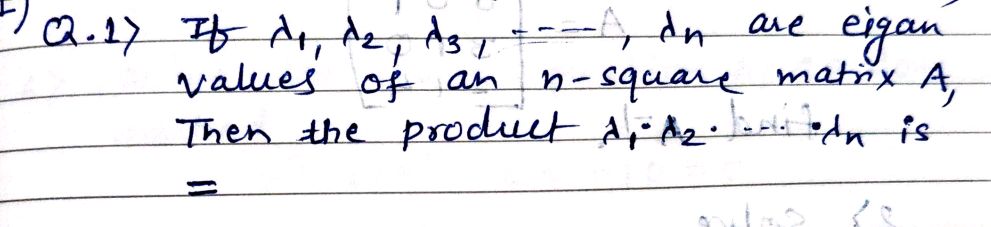 Q.1) If λ1, λ2, λ3, ----, λn are eigan
values of an n-square matrix A,
Then the product λ1·λ2· ---- ·λn is
=